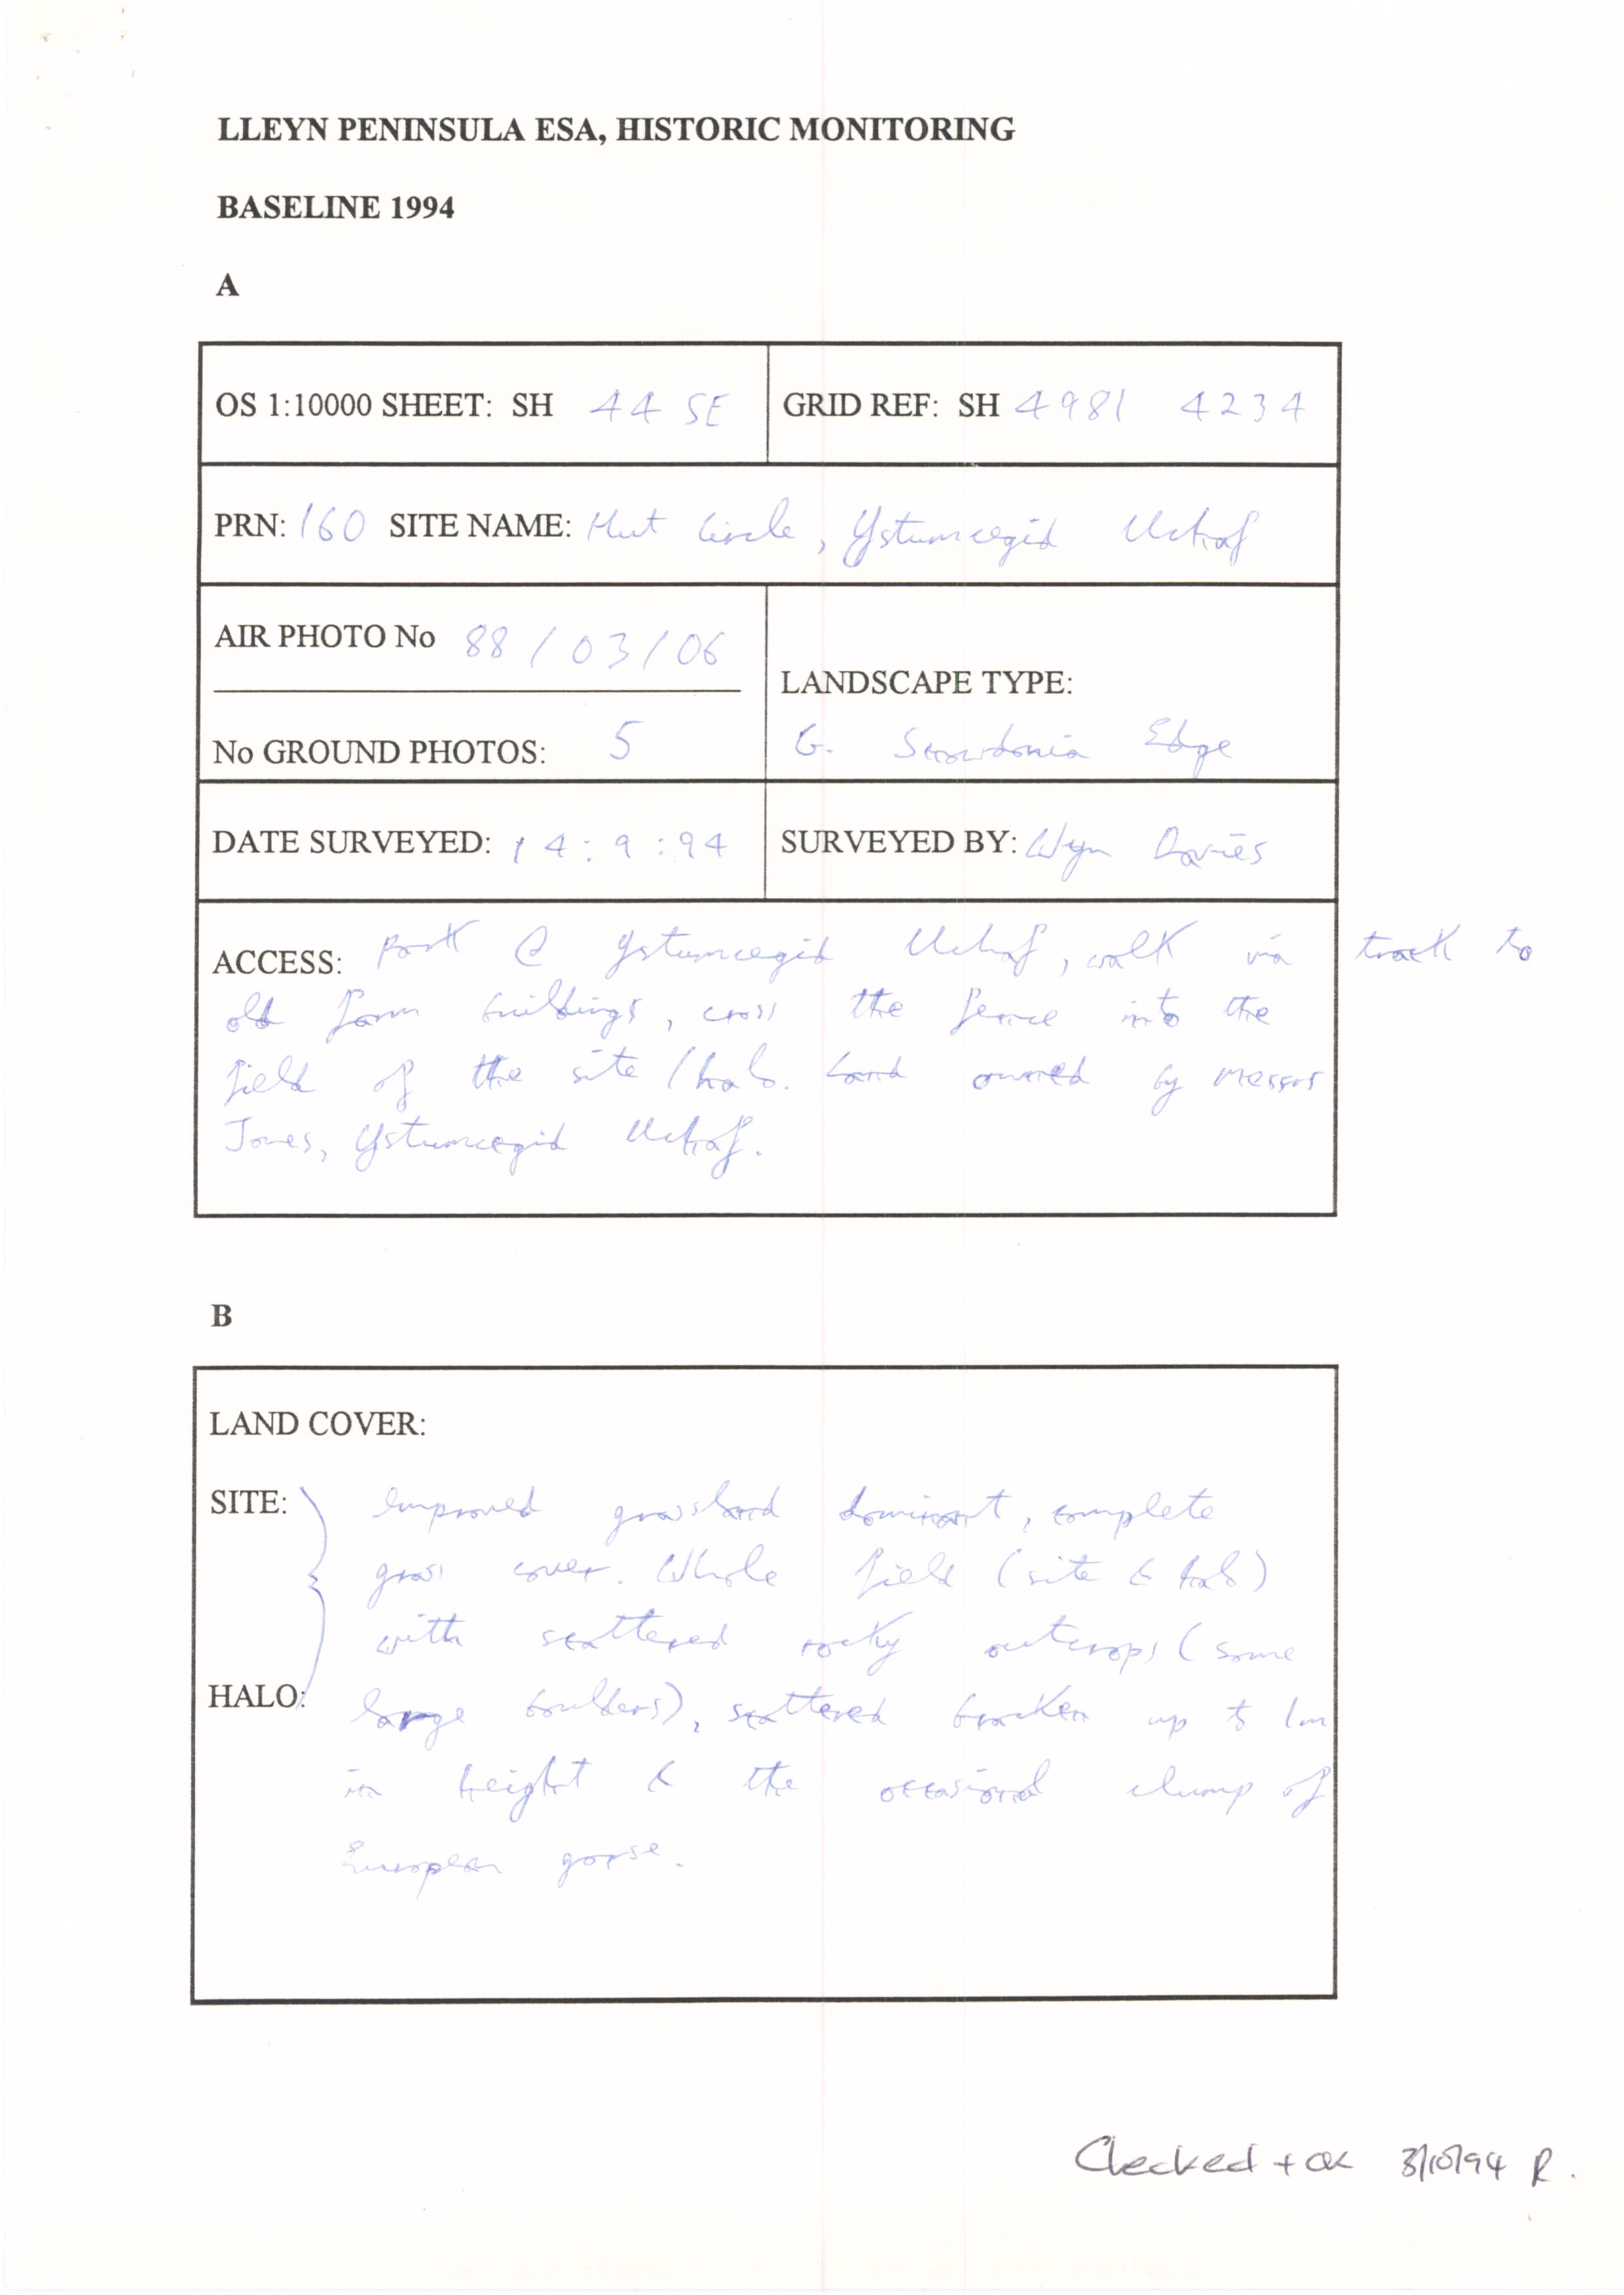 LLEYN PENINSULA ESA, HISTORIC MONITORING
BASELINE 1994
A
OS 1:10000 SHEET: SH 44 SE
GRID REF: SH 4981 4234
PRN: 160 SITE NAME: Hut Circle, Ystumcegid Uchaf
AIR PHOTO No 88/03/06
No GROUND PHOTOS: 5
LANDSCAPE TYPE:
G. Snowdonia Edge
DATE SURVEYED: 14:9:94
SURVEYED BY: Wyn Davies
ACCESS: Park @ Ystumcegid Uchaf, walk via track to
old farm buildings, cross the fence into the
field of the site/halo. Land owned by Messrs
Jones, Ystumcegid Uchaf.
B
LAND COVER:
SITE: Improved grassland dominant, complete
grass cover. Whole field (site & halo)
with scattered rocky outcrops (some
HALO: large boulders), scattered bracken up to 1m
in height & the occasional clump of
European gorse.
Checked + OK 3/10/94 R.